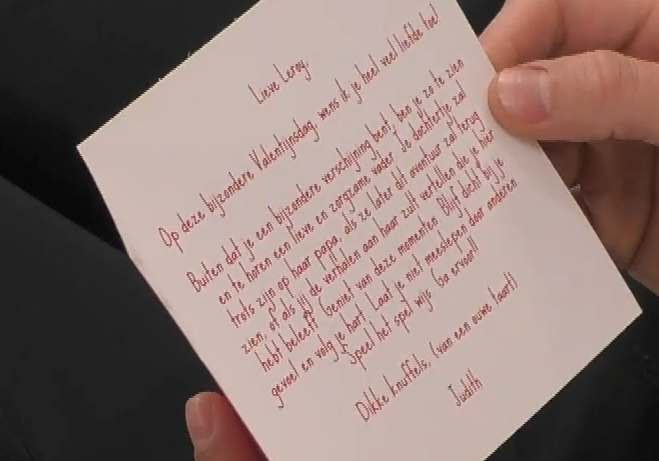 Lieve Leroy,
Op deze bijzondere Valentijnsdag, wens ik je heel veel liefde toe!
Buiten dat je een bijzondere verschijning bent, ben je zo te zien
en te horen een lieve en zorgzame vader. Je dochtertje zal
trots zijn op haar papa, als ze later dit avontuur zal terug
zien, of als jij de verhalen aan haar zult vertellen die je hier
hebt beleeft. Geniet van deze momenten. Blijf dicht bij je
gevoel en volg je hart. Laat je niet meeslepen door anderen.
Speel het spel wijs. Ga ervoor!!
Dikke knuffels, (van een ouwe taart)
Judith